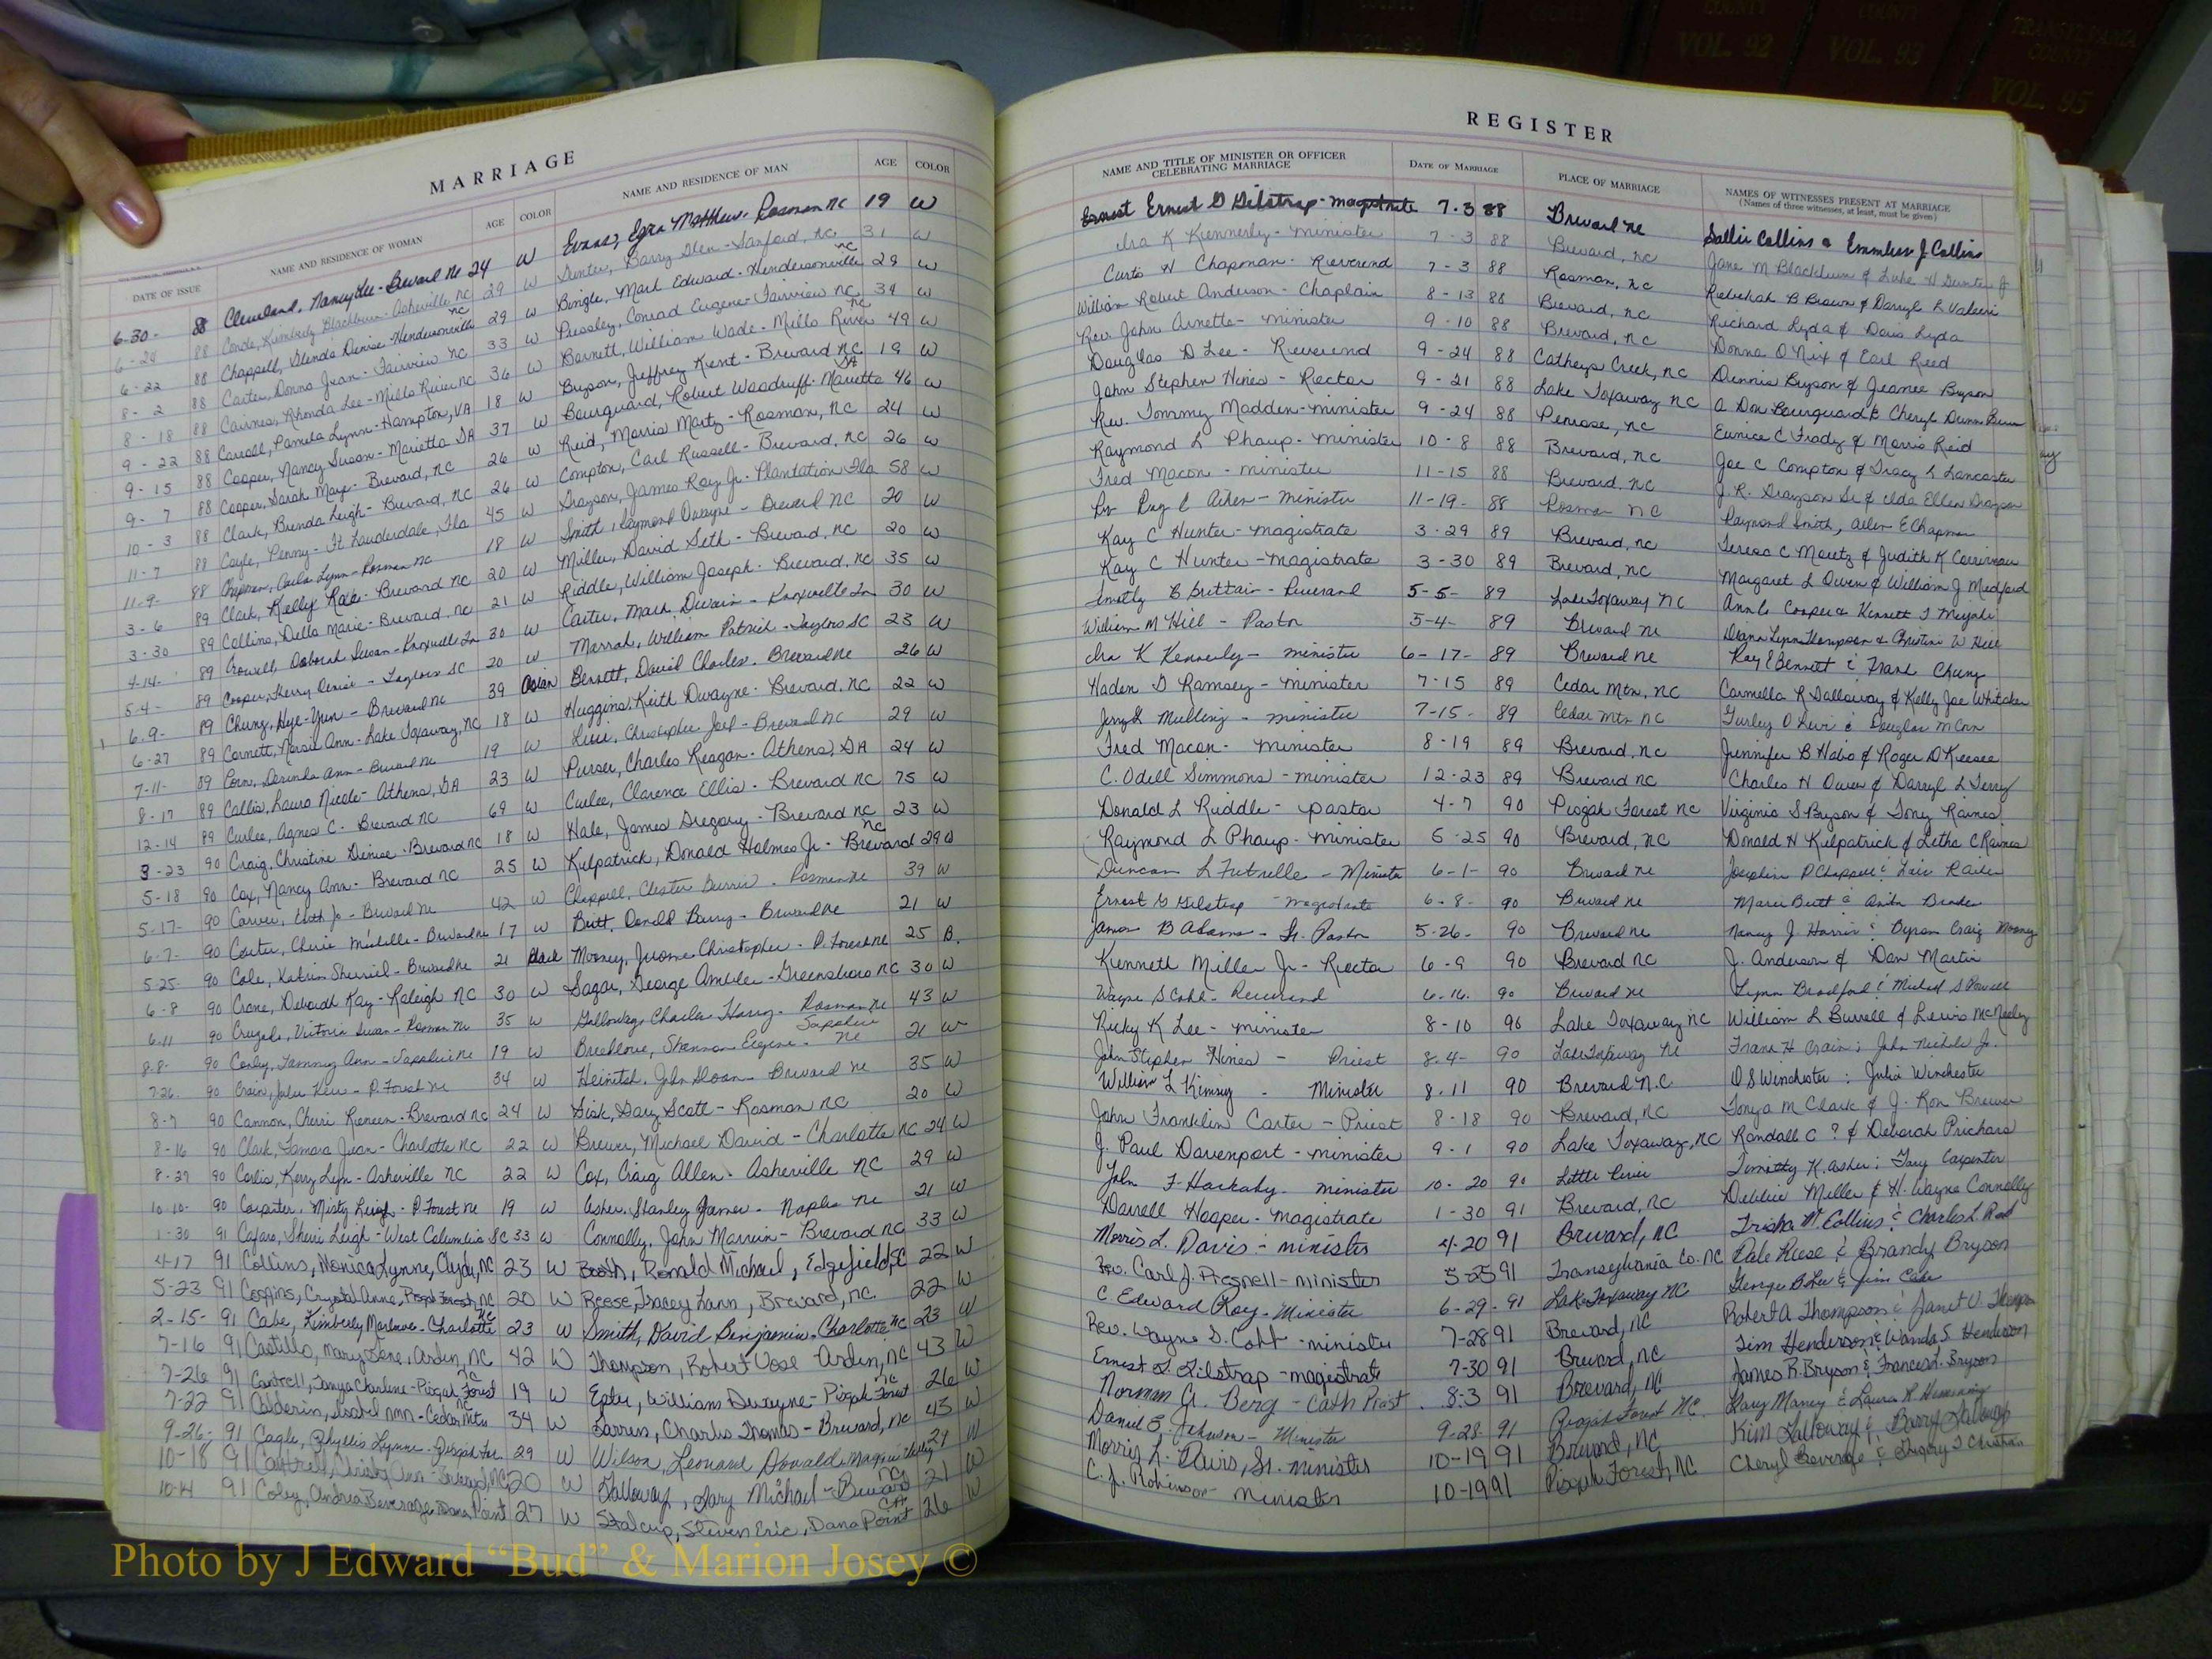 COUNTY
VOL. 92
COUNTY
VOL. 93
TRANSYLVANIA
COUNTY
VOL. 95
MARRIAGE
DATE OF ISSUE NAME AND RESIDENCE OF WOMAN AGE COLOR NAME AND RESIDENCE OF MAN AGE COLOR
6-30- 88 Cleveland, Nancy Lee - Brevard NC 24 W Evans, Ezra Matthew - Rosman NC 19 W
6-24 88 Conde, Kimberly Blackburn - Asheville NC 29 W Barry Glen - Sanford, NC 31 W
6-22 88 Chappell, Glenda Denise - Hendersonville NC 29 W Bingle, Mark Edward - Hendersonville NC 29 W
8-2 88 Carter, Donna Jean - Fairview NC 33 W Pressley, Conrad Eugene - Fairview NC 34 W
8-18 88 Cairnes, Rhonda Lee - Mills River NC 36 W Barnett, William Wade - Mills River NC 49 W
9-22 88 Carroll, Pamela Lynn - Hampton, VA 18 W Bryson, Jeffrey Kent - Brevard NC 19 W
9-15 88 Cooper, Nancy Susan - Marietta GA 37 W Bourguard, Robert Woodruff - Marietta GA 46 W
9-7 88 Cooper, Sarah Maye - Brevard, NC 26 W Reid, Morris Martz - Rosman, NC 24 W
10-3 88 Clark, Brenda Leigh - Brevard, NC 26 W Compton, Carl Russell - Brevard, NC 26 W
11-7 88 Coyle, Penny - Ft Lauderdale, Fla 45 W Grayson, James Ray Jr - Plantation Fla 58 W
11-9- 88 Chapman, Carla Lynn - Rosman NC 18 W Smith, Raymond Dwayne - Brevard NC 20 W
3-6 89 Clark, Kelly Rae - Brevard NC 20 W Miller, David Seth - Brevard, NC 20 W
3-30 89 Collins, Della Marie - Brevard, NC 21 W Riddle, William Joseph - Brevard, NC 35 W
4-14- 89 Crowell, Deborah Susan - Knoxville Tn 30 W Carter, Mark Dwain - Knoxville Tn 30 W
5-4- 89 Cooper, Kerry Denise - Taylors SC 20 W Marrah, William Patrick - Taylors SC 23 W
6-9- 89 Chung, Hye-Yun - Brevard NC 39 Asian Bennett, David Charles - Brevard NC 26 W
6-27 89 Cornett, Ann - Lake Toxaway, NC 18 W Huggins, Keith Dwayne - Brevard, NC 22 W
7-11- 89 Corn, Dorinda Ann - Brevard NC 19 W Levi, Christopher Joel - Brevard NC 29 W
8-17 89 Callis, Laura Nicole - Athens, GA 23 W Purser, Charles Reagan - Athens, GA 24 W
12-14 89 Curlee, Agnes C. - Brevard NC 69 W Curlee, Clarence Ellis - Brevard NC 75 W
3-23 90 Craig, Christine Denise - Brevard NC 18 W Hale, James Gregory - Brevard NC 23 W
5-18 90 Cox, Nancy Ann - Brevard NC 25 W Kilpatrick, Donald Holmes Jr - Brevard NC 29 W
5-17- 90 Carver, Jo - Brevard NC 42 W Chappell, Chester - Rosman NC 39 W
6-7- 90 Coster, Cherie Michelle - Brevard NC 17 W Butt, Barry - Brevard NC 21 W
5-25- 90 Cole, Katrina Sherriel - Brevard NC 21 Black Mooney, Jerome Christopher - P. Forest NC 25 B.
6-8 90 Crane, Deborah Kay - Raleigh NC 30 W Sagar, George Ambler - Greensboro NC 30 W
6-11 90 Victoria Susan - Rosman NC 35 W Galloway, Charles Harry - Rosman NC 43 W
8-8- 90 Tammy Ann - Sapphire NC 19 W Breedlove, Shannon Eugene - Sapphire NC 21 W
7-26. 90 Crain, Julia - P. Forest NC 34 W Heinitsh, John Sloan - Brevard NC 35 W
8-7 90 Cannon, Cherri Reneen - Brevard NC 24 W Fisk, Gary Scott - Rosman NC 20 W
8-16 90 Clark, Tamara Jean - Charlotte NC 22 W Brewer, Michael David - Charlotte NC 24 W
8-27 90 Corlis, Kerry Lyn - Asheville NC 22 W Cox, Craig Allen - Asheville NC 29 W
10-10- 90 Carpenter, Misty Leigh - P Forest NC 19 W Asher, Stanley James - Naples NC 21 W
1-30 91 Cafaro, Sherri Leigh - West Columbia SC 33 W Connolly, John Marvin - Brevard NC 33 W
4-17 91 Collins, Monica Lynne, Clyde, NC 23 W Booth, Ronald Michael, Edgefield, SC 22 W
5-23 91 Coggins, Crystal Anne, Pisgah Forest, NC 20 W Reese, Tracey Lann, Brevard, NC. 22 W
2-15- 91 Cabe, Kimberly Marlene - Charlotte NC 23 W Smith, David Benjamin - Charlotte NC 23 W
7-16 91 Castillo, Mary Jane, Arden, NC 42 W Thompson, Robert Vose - Arden, NC 43 W
7-26 91 Cantrell, Tonya Charlene - Pisgah Forest NC 19 W William Dewayne - Pisgah Forest NC 26 W
7-22 91 Calderin, Isabel Ann - Cedar Mtn NC 34 W Barren, Charles Thomas - Brevard, NC 43 W
9-26- 91 Cagle, Phyllis Lynne - Pisgah For. 29 W Wilson, Leonard Donald - Maggie Valley 29 W
10-18 91 Cantrell, Christy Ann - Brevard, NC 20 W Galloway, Gary Michael - Brevard NC 21 W
10-14 91 Coley, Andrea Beverage, Dana Point 27 W Stalcup, Steven Eric, Dana Point CA 26 W
REGISTER
NAME AND TITLE OF MINISTER OR OFFICER CELEBRATING MARRIAGE DATE OF MARRIAGE PLACE OF MARRIAGE NAMES OF WITNESSES PRESENT AT MARRIAGE
(Names of three witnesses, at least, must be given)
Ernest Ernest G Gilstrap - magistrate 7-3 88 Brevard NC Sallie Collins & J Collins
Ira K Kennerly - minister 7-3 88 Brevard, NC Jane M Blackburn & Luke H
Curts H Chapman - Reverend 7-3 88 Rosman, NC Rebekah B Brown & Darryl R
William Robert Anderson - Chaplain 8-13 88 Brevard, NC Richard Lyda & Doris Lyda
Rev. John Arnette - minister 9-10 88 Brevard, NC Donna O Nix & Earl Reed
Douglas D Lee - Reverend 9-24 88 Catheys Creek, NC Dennis Bryson & Jeanee Bryson
John Stephen Hines - Rector 9-21 88 Lake Toxaway NC A Don Bourguard & Cheryl Dunn
Rev. Tommy Madden - minister 9-24 88 Penrose, NC Eunice C Frady & Morris Reid
Raymond L Phaup - minister 10-8 88 Brevard, NC Joe C Compton & Tracy L Lancaster
Fred Macon - minister 11-15 88 Brevard, NC J. R. Grayson Sr & Ida Ellen Grayson
Aiken - minister 11-19- 88 Rosman NC Raymond Smith, Arlen E Chapman
Kay C Hunter - magistrate 3-29 89 Brevard, NC Teresa C Mautz & Judith K Corriveau
Kay C Hunter - magistrate 3-30 89 Brevard, NC Margaret L Owen & William J Medford
Timothy B Brittain - Reverend 5-5- 89 Lake Toxaway NC Ann C Cooper & Kenneth T
William M Hill - Pastor 5-4- 89 Brevard NC Diana Lynn Thompson & Christine W Hill
Ira K Kennerly - minister 6-17- 89 Brevard NC Ray E Bennett & Frank Chung
Haden D Ramsey - minister 7-15 89 Cedar Mtn, NC Carmella R Dalloway & Kelly Joe Whitaker
Jerry L Mullinix - minister 7-15- 89 Cedar Mtn NC Gurley O Levi & Douglas M Corn
Fred Macon - minister 8-19 89 Brevard, NC Jennifer B Nabo & Roger D Kiesee
C. Odell Simmons - minister 12-23 89 Brevard NC Charles H Owen & Darryl L Terry
Donald L Riddle - pastor 4-7 90 Pisgah Forest NC Virginia S Bryson & Tony Raines
Raymond L Phaup - minister 5-25 90 Brevard, NC Donald H Kilpatrick & Letha C Raines
Duncan L Futrelle - Minister 6-1- 90 Brevard NC Josephine P Chappell & Lois
Ernest G Gilstrap - magistrate 6-8- 90 Brevard NC Butt & Anita
James B Adams - Sr. Pastor 5-26- 90 Brevard NC Nancy J. Harris & Byron Craig Mooney
Kenneth Miller Jr - Rector 6-9 90 Brevard NC J. Anderson & Dan Martin
Wayne S Cobb - Reverend 6-16. 90 Brevard NC Lynn Bradford & Michael S Powell
Ricky K Lee - minister 8-10 90 Lake Toxaway NC William L Burrell & Lewis McNeely
John Stephen Hines - Priest 8-4- 90 Lake Toxaway NC Frank H Crain; John Nichols Jr.
William L Kinsey - Minister 8-11 90 Brevard N.C. O S Winchester; Julia Winchester
John Franklin Carter - Priest 8-18 90 Brevard, NC Tonya M Clark & J. Ron Brewer
J. Paul Davenport - minister 9-1 90 Lake Toxaway, NC Randall C ? & Deborah Prichard
John F Hackaby - minister 10-20 90 Little River Timothy K. Asher; Gary Carpenter
Darrell Hooper - magistrate 1-30 91 Brevard, NC Debbie Miller & H. Wayne Connolly
Morris L. Davis - minister 4-20 91 Brevard, NC Trisha M Collins & Charles L.
Rev. Carl J. Pregnell - minister 5-25 91 Transylvania Co. NC Dale Reese & Brandy Bryson
C Edward Roy - Minister 6-29-91 Lake Toxaway NC George B Lee & Jim Cabe
Rev. Wayne S. Cobb - minister 7-28 91 Brevard, NC Robert A Thompson & Janet V. Thompson
Ernest G. Gilstrap - magistrate 7-30 91 Brevard, NC Tim Henderson & Wanda S Henderson
Norman A. Berg - Cath Priest 8-3 91 Brevard, NC James R. Bryson & Frances L. Bryson
Daniel S. Johnson - Minister 9-28-91 Pisgah Forest NC Gary Maney & Laura R.
Morris L. Davis, Sr. minister 10-19 91 Brevard, NC Kim Galloway & Barry Galloway
C. J. Robinson - Minister 10-19 91 Pisgah Forest, NC Cheryl Beverage & Gregory T
Photo by J Edward “Bud” & Marion Josey ©